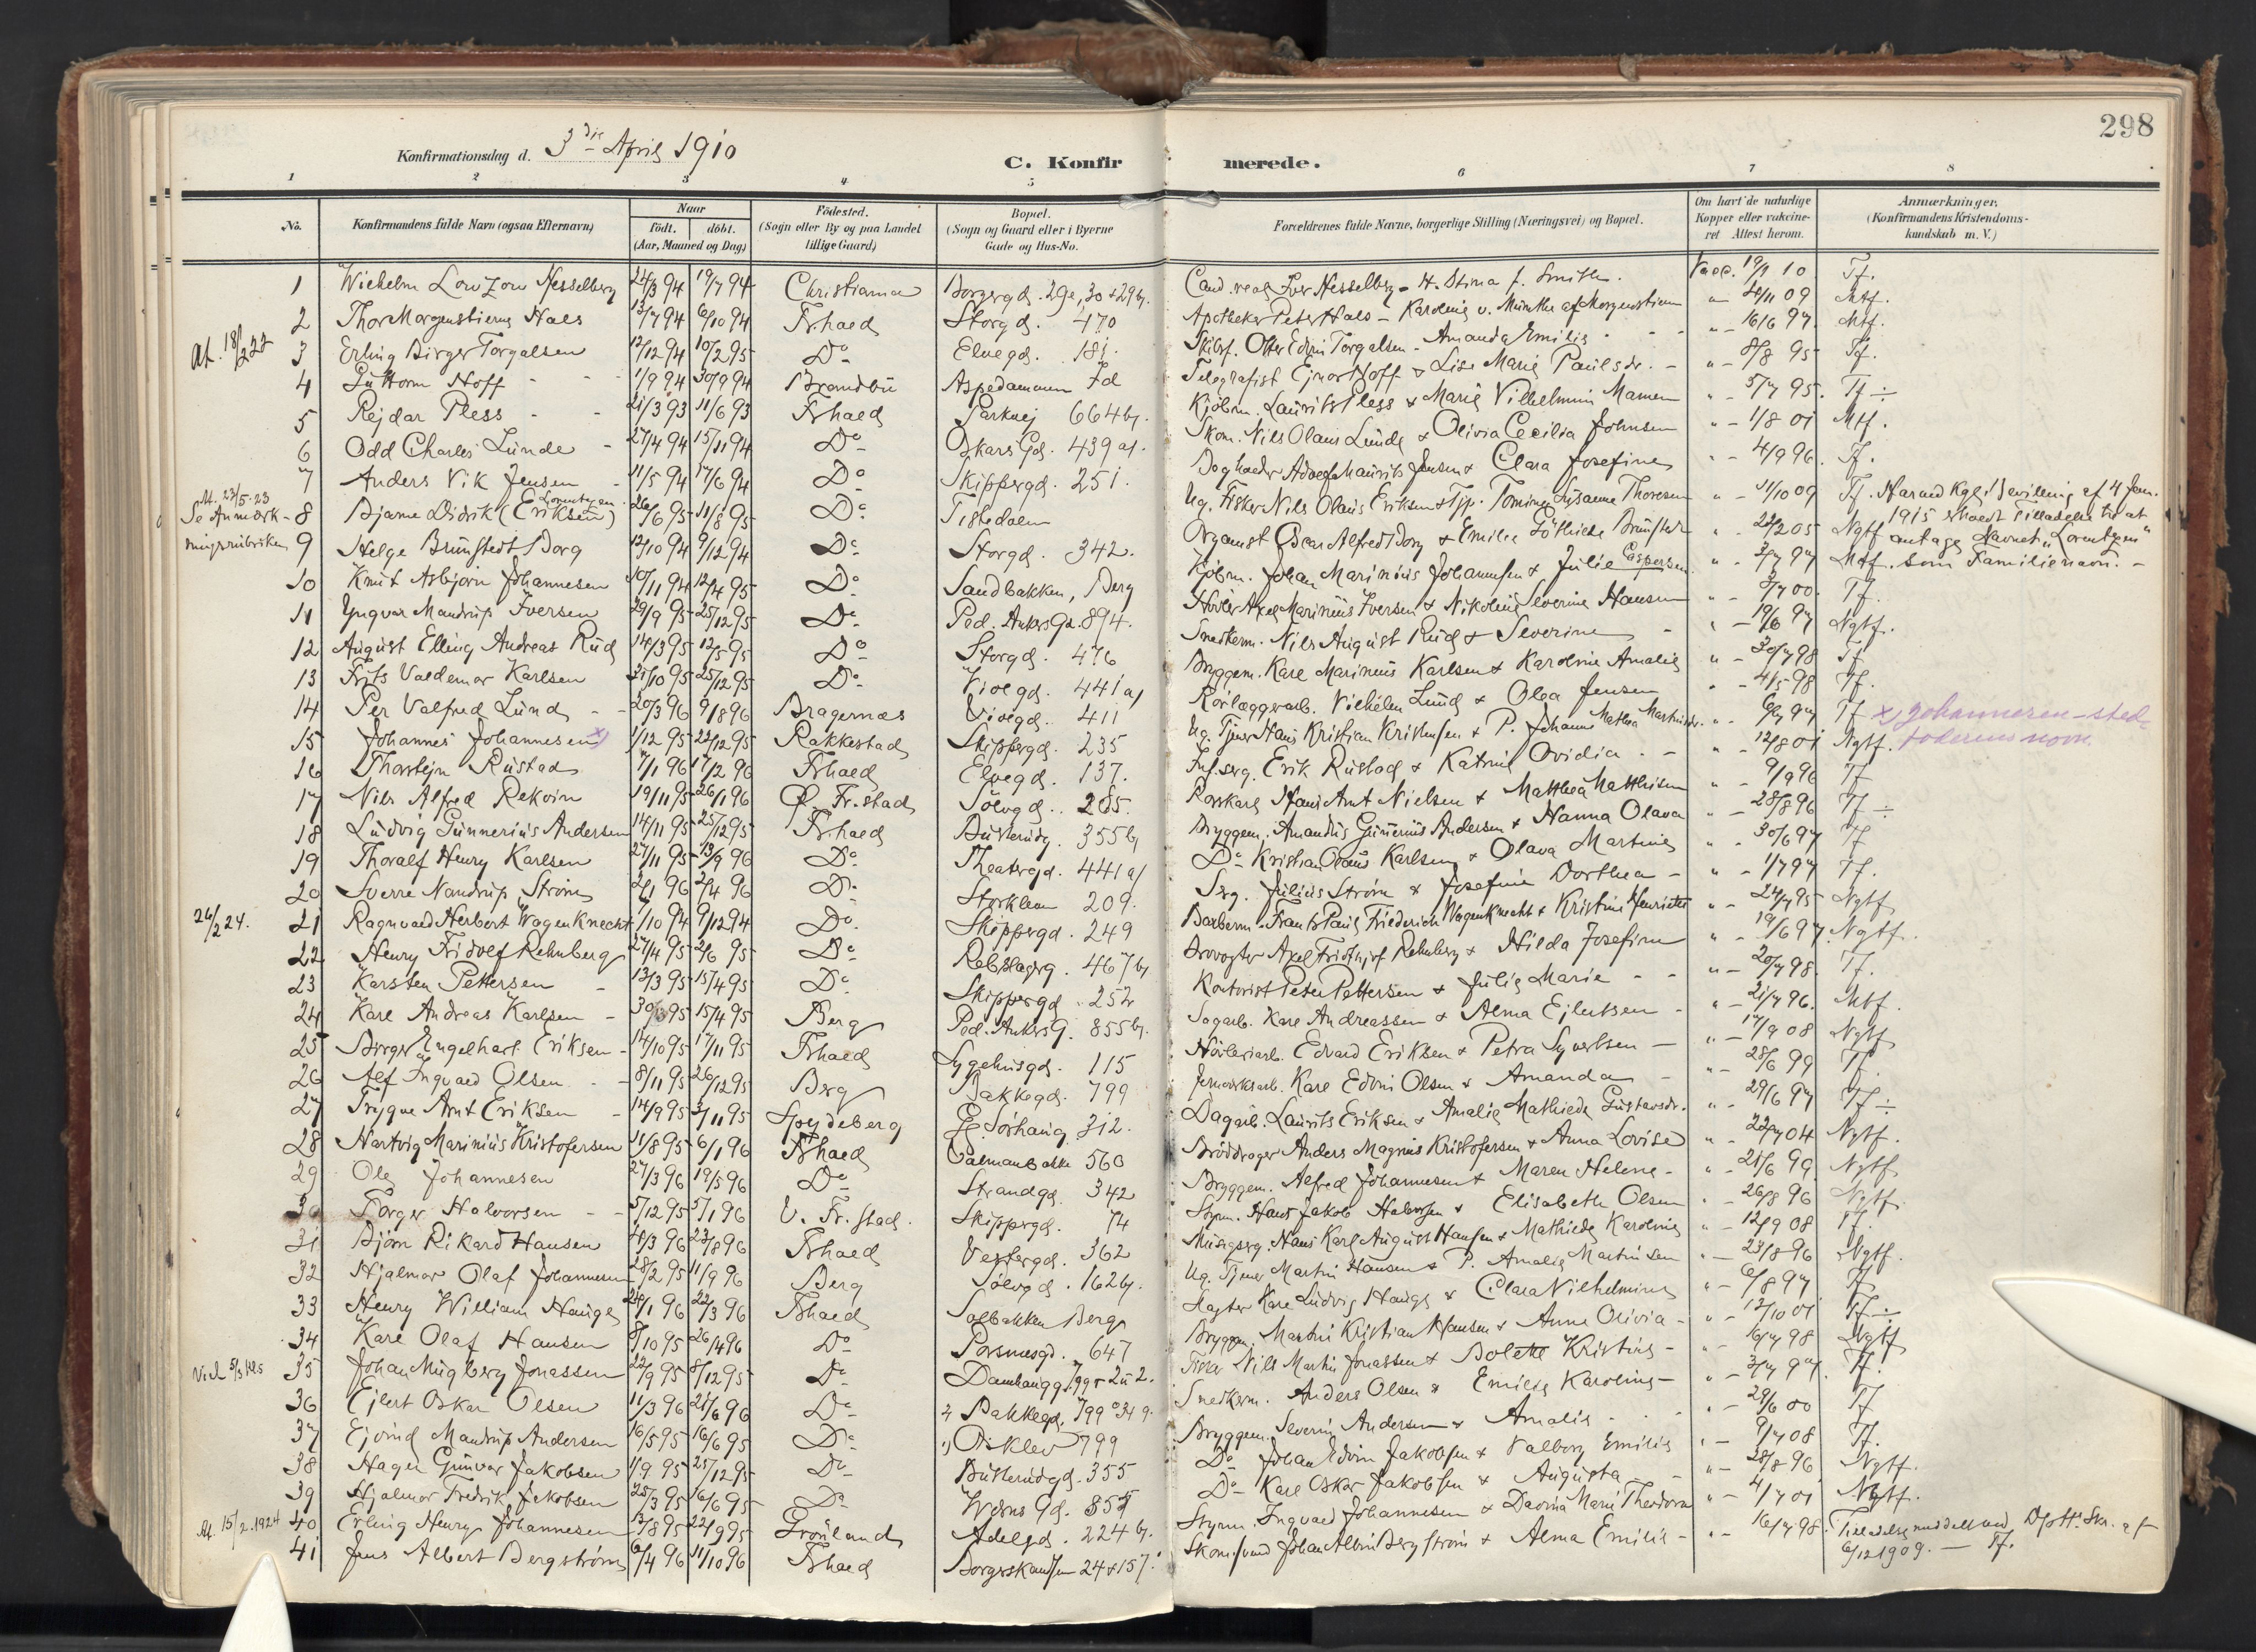 298
Konfirmationsdag d. 3die April 1910
C. Konfirmerede.
1 2 3 4 5 6 7 8
No. Konfirmandens fulde Navn (ogsaa Efternavn) Naar født. døbt. (Aar, Maaned og Dag) Fødested. (Sogn eller By og paa Landet tillige Gaard) Bopæl. (Sogn og Gaard eller i Byerne Gade og Hus-No. Forældrenes fulde Navne, borgerlige Stilling (Næringsvei) og Bopæl. Om havt de naturlige Kopper eller vaccineret Attest herom. Anmærkninger. (Konfirmandens Kristendomskundskab m. V.)
1 Wilhelm Lowzow Hesselberg 24/3 94 19/7 94 Christiania Borgergd. 29a, 30 + 29b. Cand. real Iver Hesselberg - H. Stina f. Smith. Vacc. 19/1 10 Tf.
2 Thor Morgenstierne Hals 13/7 94 6/10 94 Frhald Storgd. 470 Apotheker Peter Hals - Karoline v. Munthe af Morgenstierne " - 09 Mtf.
At. 18/2 22 3 Erling Birger Torgalsen 12/12 94 10/2 95 Do - Elvegd. 181. Skibsf. Otter Edvin Torgalsen - Amanda Emilie " - 16/6 97 Mtf.
4 Guttorm Hoff 1/9 94 30/9 94 Brandbu Aspedammen Id Telegrafist Ejnar Hoff & Lise Marie Paulsdr. " - 8/8 95 Tf.
5 Rejdar Pless 21/3 93 11/6 93 Frhald Parkvej 664 b. Kjøbm. Laurits Pless & Marie Vilhelmine Mamen " - 5/7 95. Tf ÷
6 Odd Charles Lunde 27/4 94 15/11 94 Do - Oskars Gd. 439 a. Skom. Nils Olaus Lunde & Olivia Cecilia Johnsen " - 1/8 01 Mtf.
7 Anders Vik Jensen 11/5 94 17/6 94 Do Skippergd. 251. Bogholder Adolf Maurits Jensen & Clara Josefine " - 4/9 96. Tf.
At. 23/5-23 Se Anmærkningsrubriken 8 Bjarne Didrik (Eriksen) Lorentzen 26/6 95 11/8 95 Do - Tistedalen Ug. Fisker Nils Olaus Eriksen & Pjp. Tomine Susanne Thoresen " - 11/10 09 Tf. Har ved Kgl. Bevilling af 4 Jan. 1915 erholdt Tilladelse til at antage Navnet "Lorentzen" som Familienavn. -
9 Helge Brunstedt Borg 12/10 94 9/12 94 Do - Storgd. 342. Organist Oscar Alfred Borg & Emilie Gothilde Brunstedt " - 22/2 05 Ngtf
10 Knut Asbjørn Johannesen 10/11 94 12/4 95 Do - Sandbakken, Berg Kjøbm. Johan Marinius Johannesen & Julie Caspersen " - 3/7 97 Mtf.
11 Yngvar Mandrup Iversen 29/9 95 25/12 95 Do - Ped. Ankers Gd. 894. Axel Marinius Iversen & Nikoline Severine Hansen " - 3/7 00 Tf.
12 August Elling Andreas Rud 14/3 95 12/5 95 Do - Storgd. 476 Snedkerm. Nils August Rud & Severine " - 19/6 97 Ngtf.
13 Frits Valdemar Karlsen 31/10 95 25/12 95 Do - Violgd. 441 a) Bryggem. Karl Marinius Karlsen & Karoline Amalie " - 30/7 98 Tf
14 Per Valfred Lund 20/3 96 9/8 96 Bragernæs Violgd. 411 Rørlæggerarb. Vilhelm Lund & Olea Jensen " - 4/5 98 Tf.
15 Johannes Johannesen x) 1/12 95 22/12 95 Rakkestad Skippergd. 235 Ug. Tjener Hans Kristian Kristensen & P. Johanne Mathea Martinsdr. " - Tf x) Johannesen - stedfaderens navn.
16 Thorstejn Rustad 7/1 96 17/2 96 Frhald Elvegd. 137. Erik Rustad & Katrine Ovidia " - 12/8 01 Ngtf.
17 Nils Alfred Rekvin 19/11 95 26/1 96 Ø. Fr.stad Sølvgd. 265. Hans Arnt Nielsen & Matthea Matthisen " - 9/9 96 Tf
18 Ludvig Gunnerius Andersen 14/11 95 25/12 95 Frhald 355 b) Bryggem. Amandus Gunerius Andersen & Hanna Olava " - 28/8 96 Tf ÷
19 Thoralf Henry Karlsen 27/11 95 13/9 96 Do - Theatergd. 441 a) Do - Kristian Olaus Karlsen & Olava Martine " - 30/6 97 Tf
20 Sverre Nandrup Strøm 2/1 96 2/4 96 Do - Storkleven 209. Sag. Julius Strøm & Josefine Dorthea - " - 1/7 97 Tf.
26/2 24. 21 Ragnvald Herbert Wagenknecht 1/10 94 9/12 94 Do. Skippergd. 249 Barberm. Frants Paul Friederich Wagenknecht & Kristine Henriette " - 24/7 95 Ngtf
22 Henry Fridolf Rehnberg 27/4 95 2/6 95 Do - Rebslagerg. 467 b) Brovogter Axel Fridthjof Rehnberg & Hilda Josefine " - 19/6 97. Ngtf.
23 Karsten Pettersen 13/3 95 15/4 95 Do - Skippergd. 252 Kontorist Peter Pettersen & Julie Marie " - 20/7 98. Tf.
24 Karl Andreas Karlsen 95 15/4 95 Berg Ped. Ankers G. 855 b. Sagarb. Karl Andreassen & Alma Ejlertsen " - 21/7 96. Mtf.
25 Birger Engelhart Eriksen 14/10 95 17/11 95 Frhald Sygehusgd. 115 Høvleriarb. Edvard Eriksen & Petra Syvertsen - " - 17/9 08 Ngtf
26 Alf Ingvald Olsen 8/11 95 26/12 95 Berg Bakkegd. 799 Jernverksarb. Karl Edvin Olsen & Amanda " - 28/6 99 Tf.
27 Trygve Arnt Eriksen 14/9 95 3/11 95 Spydeberg Gl. Sørhaug 312. Dagarb. Laurits Eriksen & Amalie Mathilde Gustavsdr. " - 29/6 97 Tf ÷
28 Hartvig Marinius Kristofersen 11/8 95 6/1 96 Frhald Valmanbakke 560 Brøddrager Anders Magnus Kristofersen & Anna Lovise " - 22/7 04 Ngtf.
29 Ole Johannesen 27/3 96 19/5 96 Do Strandgd. 342 Bryggem. Alfred Johannesen & Maren Helene - " - 21/6 99 Ngtf
30 Torger Halvorsen 5/12 95 5/1 96 V. Fr. stad. Skippergd. 74 Styrm. Hans Jakob Halvorsen & Elisabeth Olsen " - 26/8 96 Ngtf.
31 Bjørn Rikard Hansen 18/3 96 23/8 96 Frhald Vestergd. 362 Hans Karl August Hansen & Mathilde Karoline " - 12/9 08 Tf.
32 Hjalmar Olaf Johannesen 28/2 95 11/9 96 Berg Sølvgd. 162 b. Ug. Tjener Martin Hansen & P. Amalie Martinsen " - 23/8 96 Ngtf.
33 Henry William Hauge 24/1 96 22/3 96 Frhald Solbakken Berg Slagter Karl Ludvig Hauge & Clara Vilhelmine " - 6/8 97 Tf
34 Karl Olaf Hansen 8/10 95 26/4 96 Do - Porsnesgd. 647 Bryggem. Martin Kristian Hansen & Anne Olivia - " - 12/10 01 Tf ÷
35 Johan Mugberg Jonassen 22/9 95 8/12 95 Do Damhaugg. Fisker Nils Martin Jonassen & Bolette Kristine - " - 16/7 98 Ngtf
36 Ejlert Oskar Olsen 11/3 96 21/6 96 Do - Bakkegd. 799 Snedkerm. Anders Olsen & Emilie Karoline - " - 3/7 97. Tf.
37 Ejvind Mandrup Andersen 16/5 95 16/6 95 Do - Osklev 799 Bryggem. Severin Andersen & Amalie " - 29/6 00 Tf
38 Hagen Gunvar Jakobsen 1/9 95 25/12 95 Do 355 Do Johan Edvin Jakobsen & Valborg Emilie " - 9/7 08 Tf.
39 Hjalmar Fredrik Jakobsen 25/3 95 16/6 95 Do - Gd. Do - Karl Oskar Jakobsen & Augusta " - 28/8 96 Ngtf.
At. 15/2.1924 40 Erling Henry Johannesen 13/8 95 22/9 95 Grønland Adelgd. 224 b. Styrm. Ingvald Johannesen & Marie Theodora " - 4/7 01 Ngtf.
41 Jens Albert Bergstrøm 6/4 96 11/10 96 Frhald Borgerskansen 24 & 157. Johan Albin Bergstrøm & Alma Emilie - " - 16/7 98. Tilladelse meddelt ved Dptts. Skr. af 6/12 1909. - Tf.